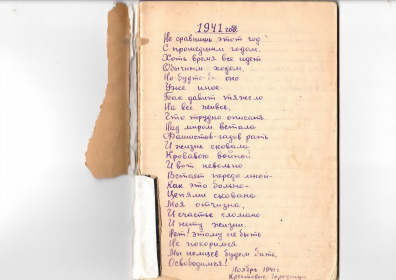 1941 год.
Не сравнишь этот год
С прошедшим годом,
Хоть время все идет
Обычным ходом,
Но будто-бы оно
Уже иное
Так давит тяжело
На всё живое,
Что трудно описать.
Над миром встала
Фашистов-гадов рать
И жизнь сковала
Кровавою войной.
И вот невольно
Встает передо мной-
Как это больно-
Цепями скована
Моя отчизна,
И счастье сломано
И нету жизни.
Нет! этому не быть
Не покоримся
Мы немцев будем бить,
Освободимся!
Ноябрь 1941 г.